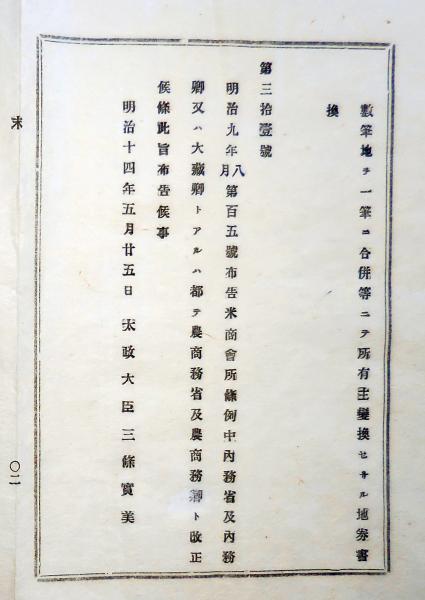 數筆地ヲ一筆ニ合併等ニテ所有主變換セサル地券書
換
第三拾壹號
明治九年八月第百五號布告米商會所條例中內務省及內務
卿又ハ大藏卿トアルハ都テ農商務省及農商務卿ト改正
候條此旨布告候事
明治十四年五月廿五日 太政大臣三條實美
末
〇二